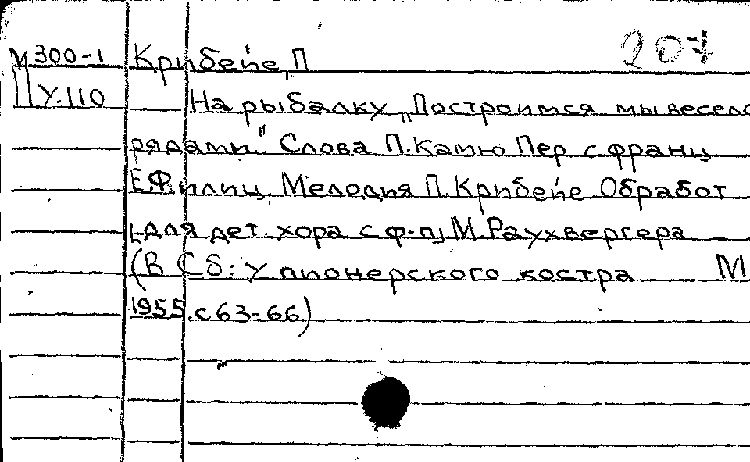 М300-1 Крибейе, П 207
У.110 На рыбалку „Построимся мы весело
рядами." Слова П.Камю Пер с франц
Е.Филиц, Мелодия П.Крибейе Обработ
для дет. хора с ф-п, М.Раухвергера
(В Сб: У пионерского костра М
1955. с 63-66)